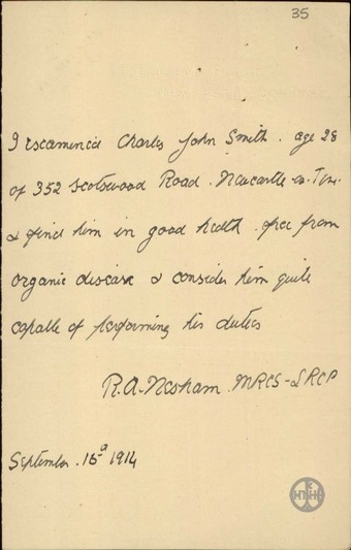 35
I examined Charles John Smith. age 28
of 352 Scotswood Road. Newcastle on Tyne.
& find him in good health. free from
organic disease & consider him quite
capable of performing his duties
R.A. Nesham. MRCS-LRCP
September. 16th 1914